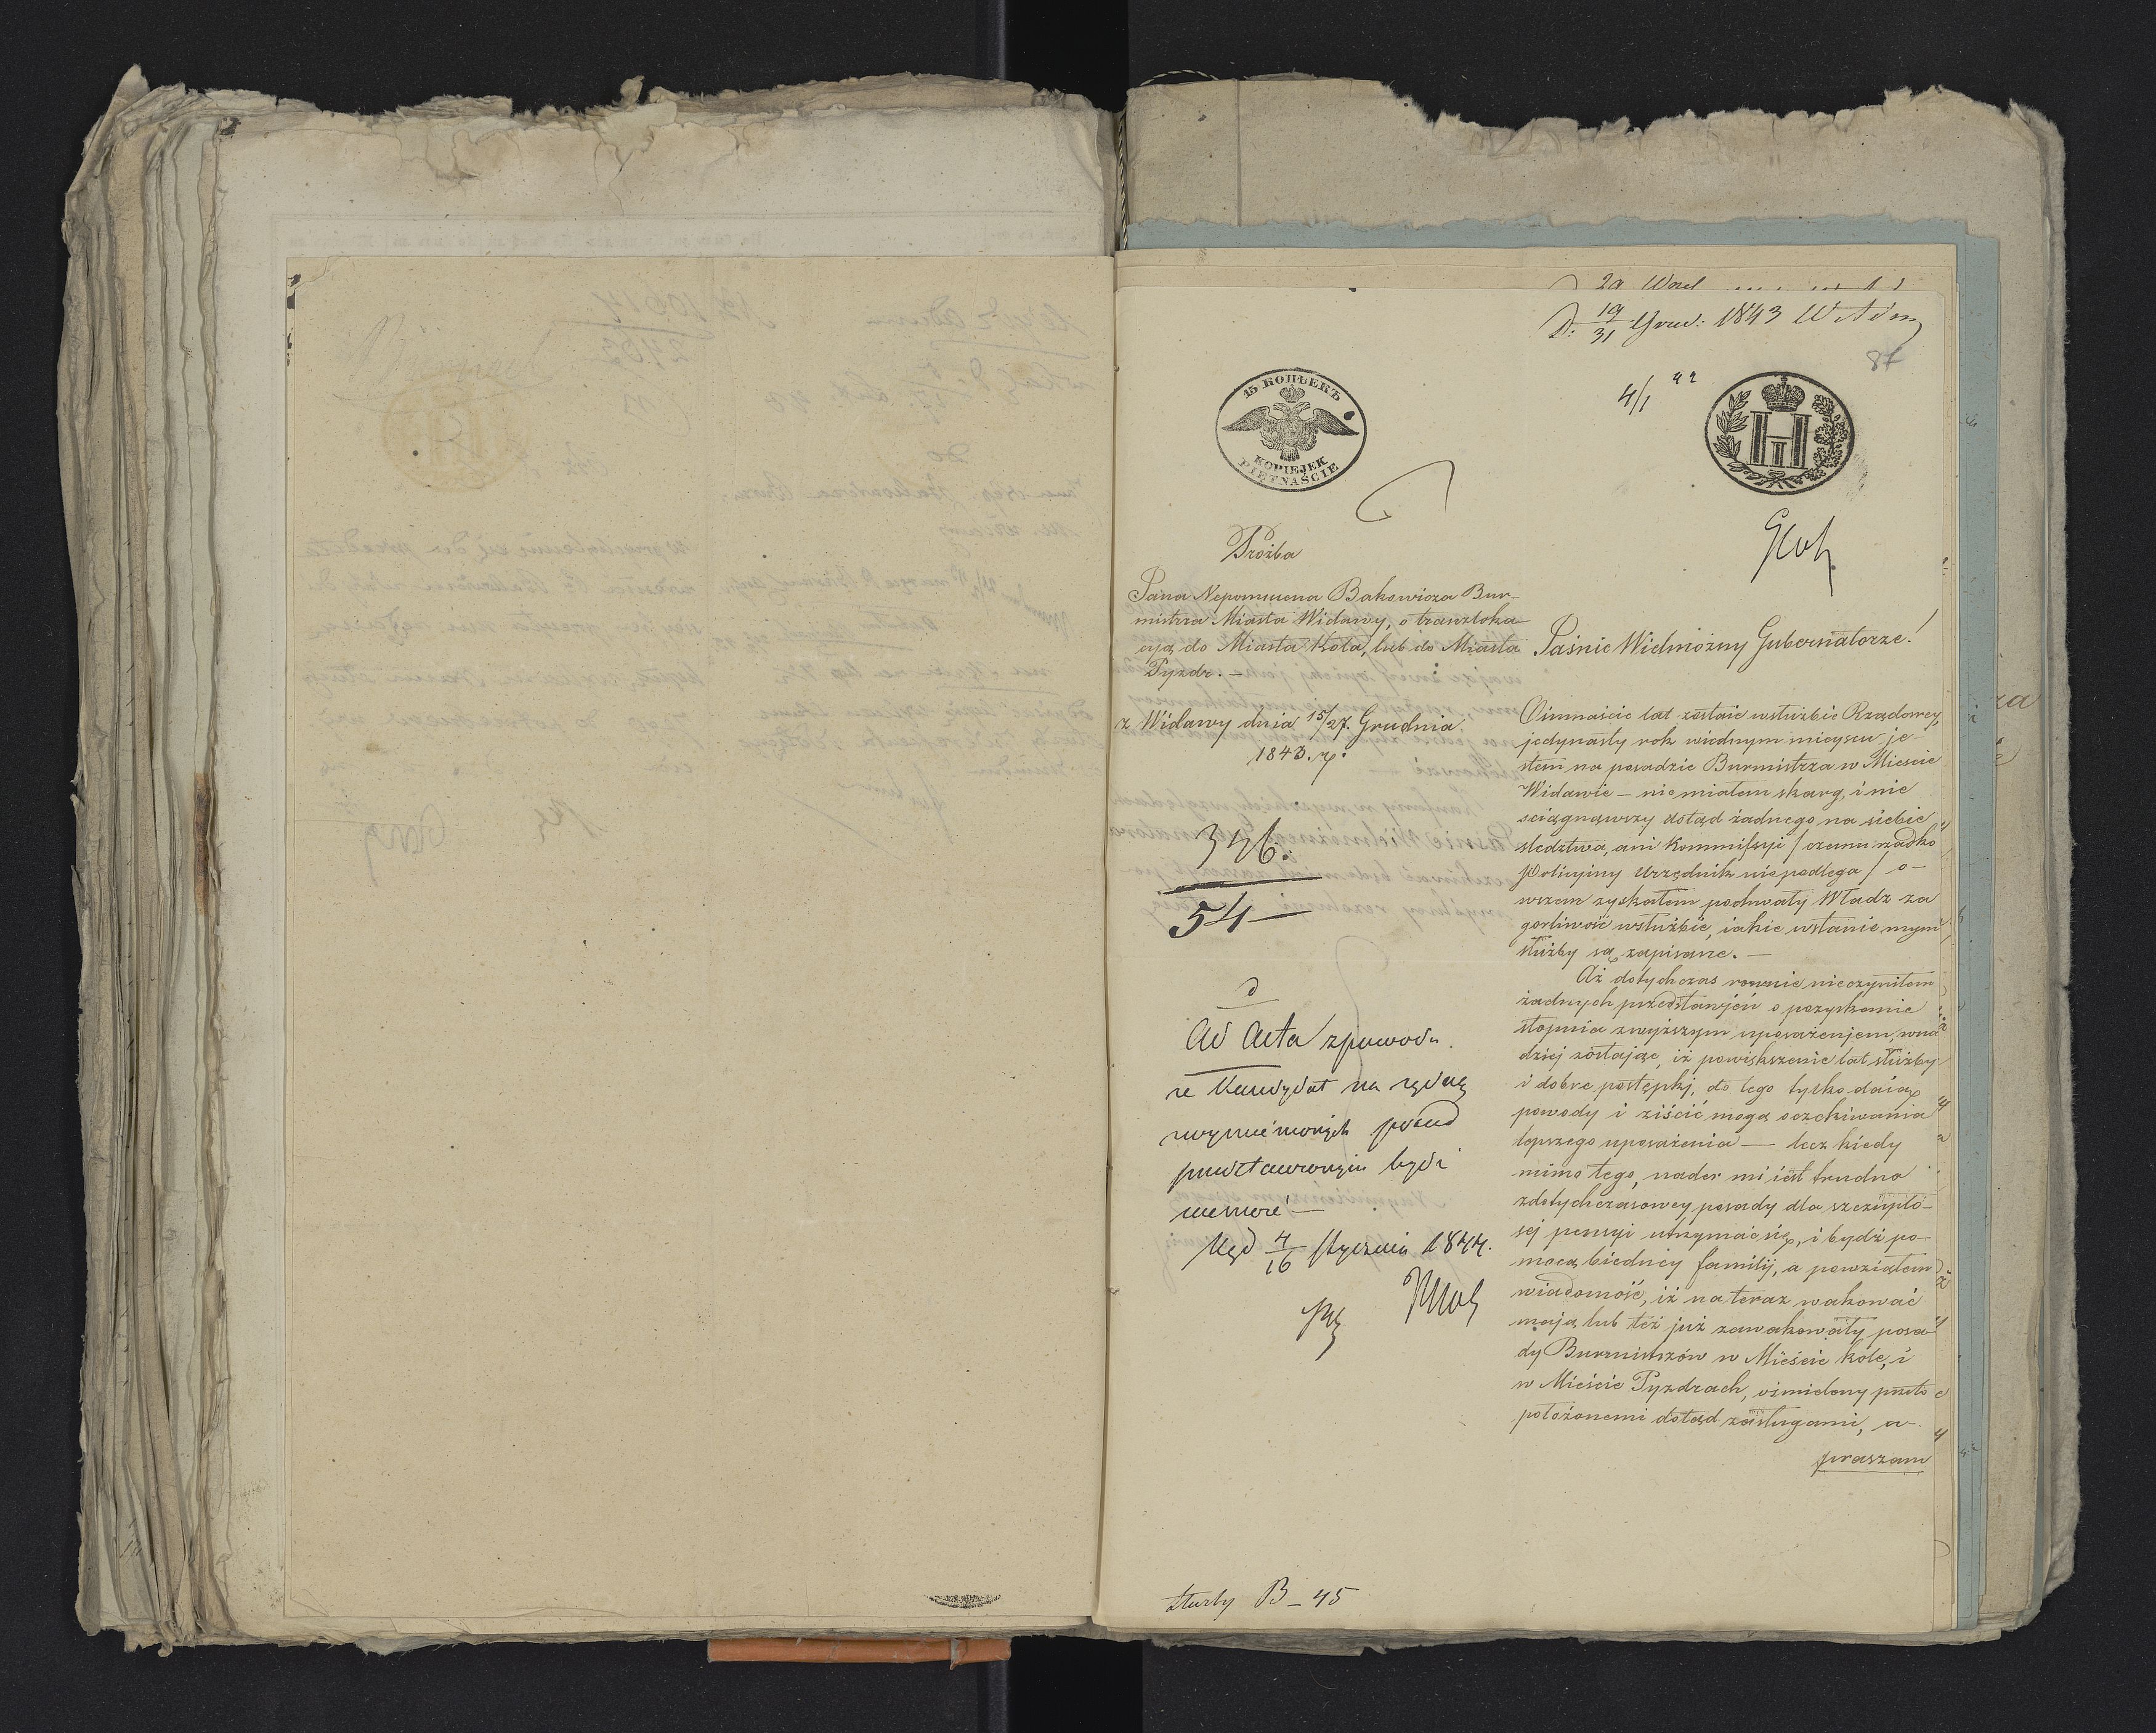 D: 19/31 Grud: 1843 W Adm
87
4/1 44
15 КОПѢЕКЪ
KOPIEJEK
PIĘTNAŚCIE
Prożba
Jana Nepomucena Bakowicza Bur-
mistrza Miasta Widawy, o tranzloka-
cyą do Miasta Koła, lub do Miasta
Pyzdr. -
z Widawy dnia 15/27. Grudnia
1843. r:
346:
54 -
Ad Acta zpowodu
ze Kandydat na
posad
przedstawionym bydź
niemoże -
4/16 Stycznia 1844.
Służby B - 45
Jaśnie Wielmożny Gubernatorze!
Ośmnaście lat zostaie wsłużbie Rządowey,
jedynasty rok wiednym mieyscu je-
stem na posadzie Burmistrza w Mieście
Widawie - nie miałem skarg, i nie
sciągnąwszy dotąd żadnego na siebie
sledztwa, ani Kommissyi / czemu rzadko
Policyiny Urzędnik niepodlega / o-
wszem zyskałem pochwały Władz za
gorliwość wsłużbie, iakie wstanie mym
służby są zapisane. -
Aż dotychczas rownie nieczyniłem
żadnych przedstawień o pozyskanie
stopnia zwyższym uposażeniem, wna-
dziej zostając, iż powiększenie lat służby
i dobre postępki, do tego tylko daią
powody i ziścić mogą oczekiwania
lepszego uposażenia - lecz kiedy
mimo tego, nader mi iest trudno
zdotychczasowey posady dla szczupło-
sej pensyi utrzymać się, i bydź po-
mocą biedney familij, a powziąłem
wiadomość, iż na teraz wakować
mają lub też już zawakowały posa-
dy Burmistrzów w Mieście Kole, i
w Mieście Pyzdrach, ośmielony
położonemi dotąd zasługami, u-
praszam